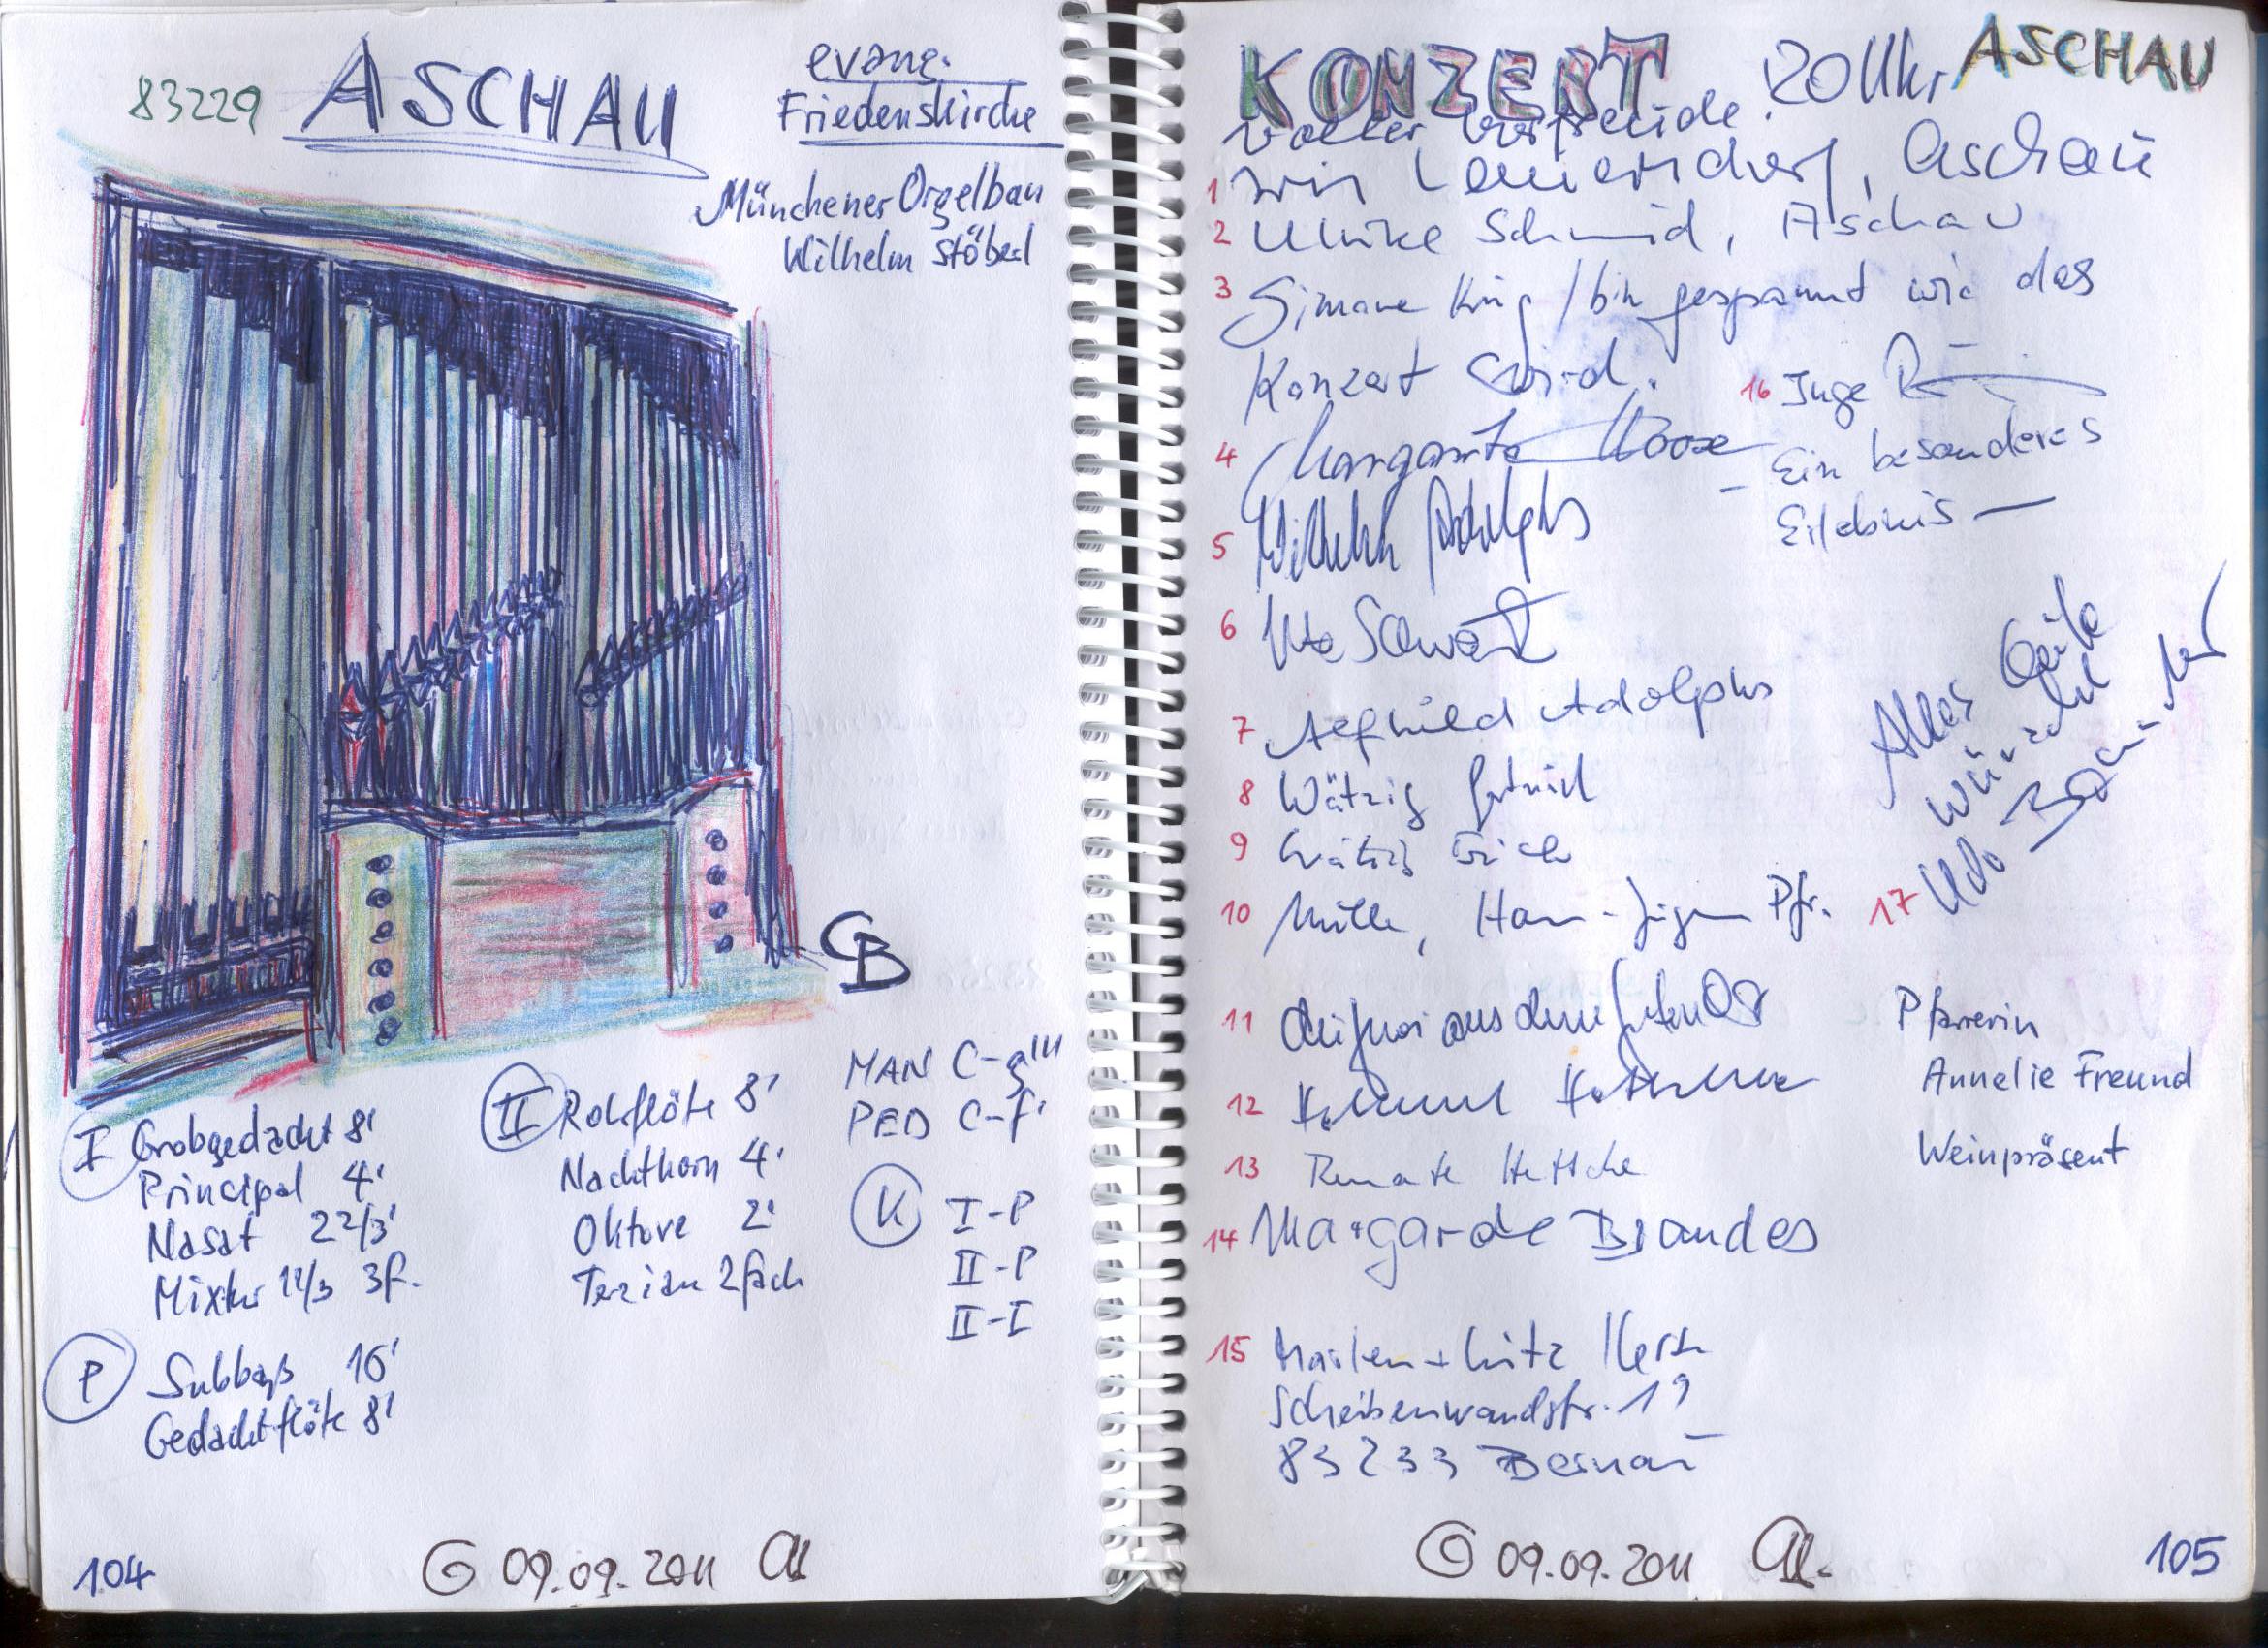 83229 ASCHAU
evang.
Friedenskirche
Münchener Orgelbau
Wilhelm Stöberl
CB
I Grobgedackt 8'
Principal 4'
Nasat 2 2/3'
Mixtur 1 1/3 3f.
P Subbaß 16'
Gedacktflöte 8'
II Rohrflöte 8'
Nachthorn 4'
Oktave 2'
Terzian 2fach
MAN C-g'''
PED C-f'
K I-P
II-P
II-I
104
09.09.2011
KONZERT 20 Uhr ASCHAU
voller Vorfreude
1 Aschau
2 Ulrike Schmid, Aschau
3 Simone King / bin gespannt wie das
Konzert wird.
4 Margarete
5 Wilhelm Adolphs
6 Ute
7 Adolphs
8 Wätzig
9 Wätzig Erich
10 Müller, Hans-Jürgen Pfr.
11 aus dem
12
13 Renate
14 Margarde Brandes
15
Scheibenwandstr. 19
83233 Bernau
16 Inge
Ein besonderes
Erlebnis
Alles Gute
wünscht
17 Udo
Pfarrerin
Annelie Freund
Weinpräsent
09.09.2011
105